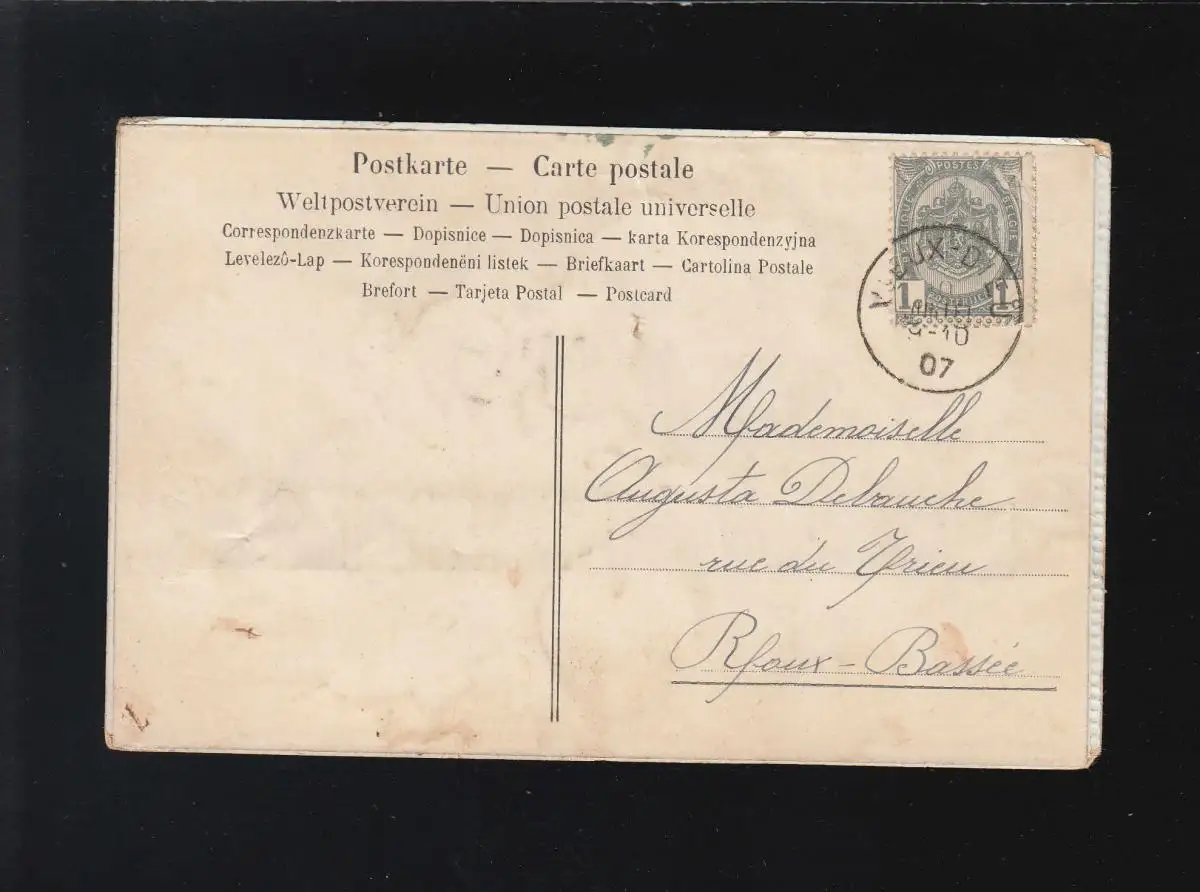 Postkarte — Carte postale
Weltpostverein — Union postale universelle
Correspondenzkarte — Dopisnice — Dopisnica — karta Korespondenzyjna
Levelezô-Lap — Korespondenèni listek — Briefkaart — Cartolina Postale
Brefort — Tarjeta Postal — Postcard
POSTES
BELGIQUE BELGIE
POSTERIJEN
1 1
9-10
07
Mademoiselle
Augusta Debauche
rue du Trieu
Roux-Bassée